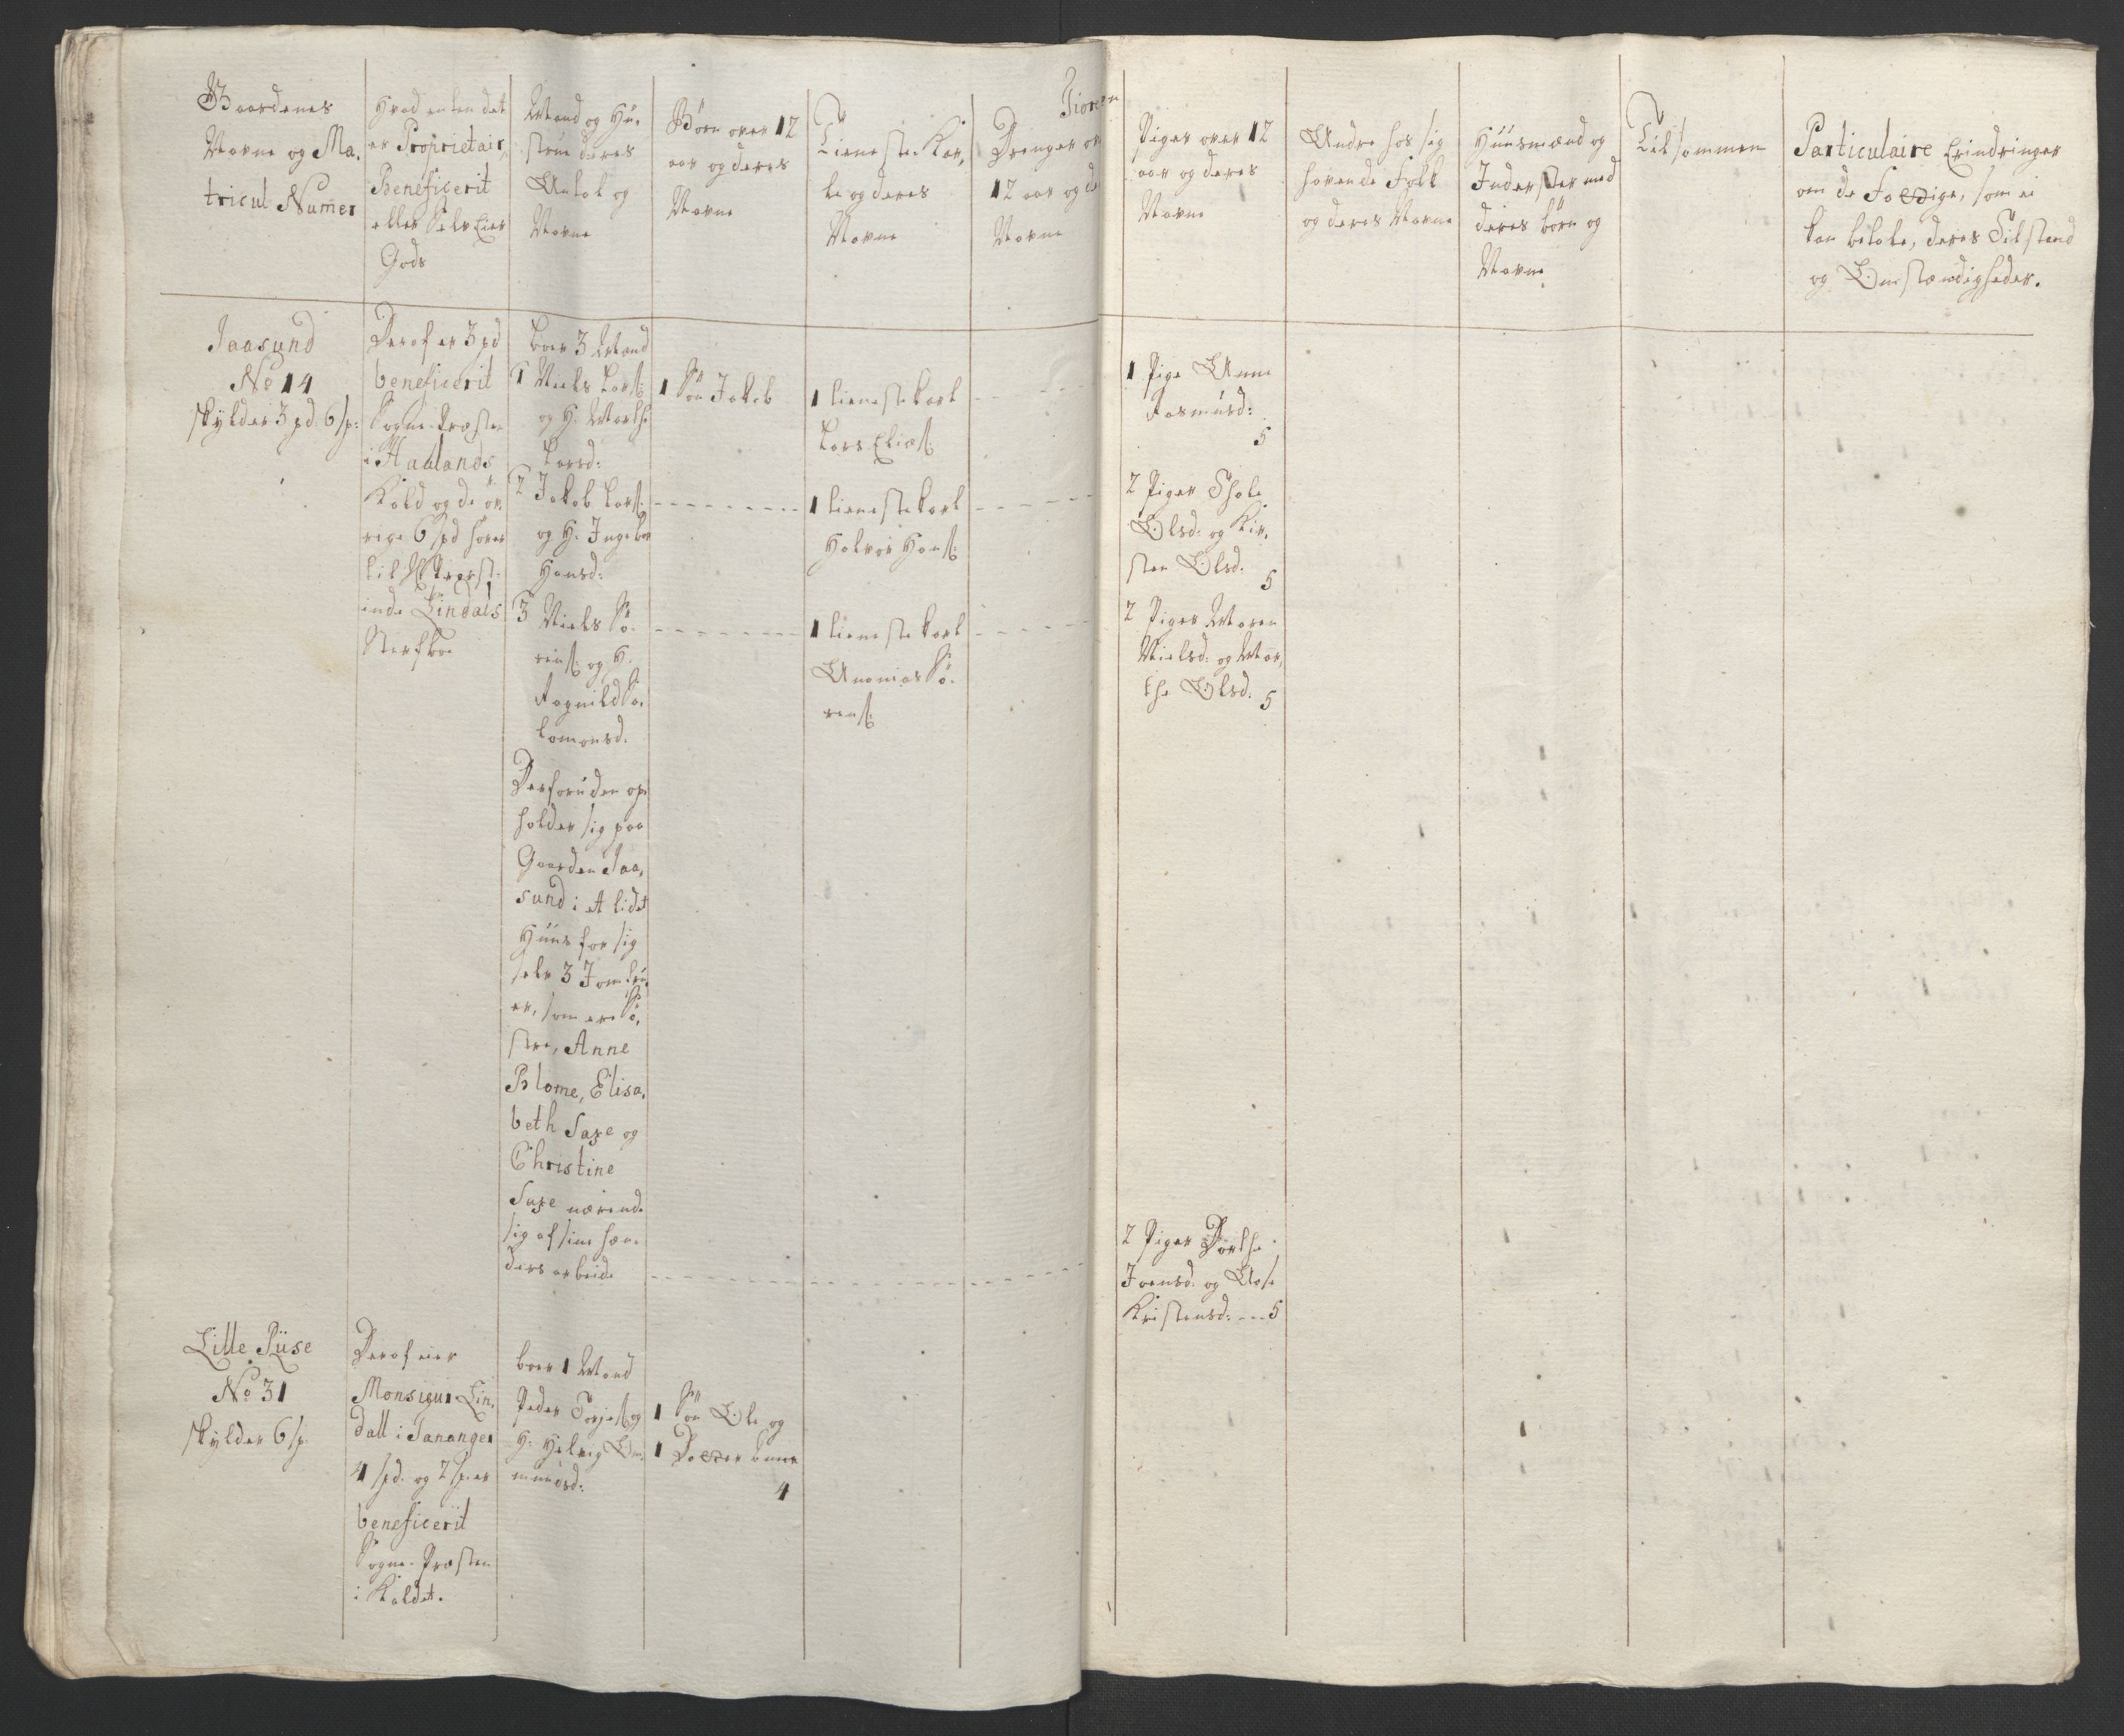 Gaardenes
Navne og Ma-
tricul Numer
Hvad enten det
er Proprietair,
Beneficerit
eller Selv Eier
Gods
Mand og Hu-
strue deres
Antal og
Navne
Börn over 12
aar og deres
Navne
Tieneste Kar-
le og deres
Navne
Tiene
Drenge ov
12 aar og de
Navne
Piger over 12
aar og deres
Navne
Andre hos sig
havende Folk
og deres Navne
Huusmænd og
Inderster med
deres börn og
Navne
Tilsammen
Particulaire Erindringer
om de Fattige, som ei
kan betale, deres Tilstand
og Omstændigheder.
Jaasund
No 14
skylder 3 pd. 6 sp:
Deraf er 3 pd
beneficerit
Sogne-Præsten
i Haalands
Kald og de öv-
rige 6 spd hörer
til
inde Lindals
Sterfboe
boer 3 Mand
1 Niels Lars:
og H. Marthe
Larsd:
2 Jakob Lars:
og H. Ingebor
Hansd:
3 Niels Sö-
rens: og H.
Ragnild Sa-
lomonsd.
Desforuden op-
holder sig paa
Gaarden Jaa-
sund i et lidet
Huus for sig
selv 3 Jomfru-
er, som ere Sö-
stre, Anne
Blome, Elisa-
beth Saxe og
Christine
Saxe nærende
sig af sine hæn-
ders arbeide
1 Sön Jakob
1 tieneste karl
Lars Elias:
1 tieneste karl
Halvor Hans:
1 tieneste karl
Ananias Sö-
rens:
1 Pige Anne
Rasmusd:
5
2 Piger Thale
Olsd. og Kir-
sten Olsd.
5
2 Piger Maren
Nielsd: og Mar-
the Olsd.
5
2 Piger Dorthe
Joensd. og Aase
Kristensd: --- 5
Lille Risse
No 31
skylder 6 sp.
Deraf eier
Monsigur Lin-
dall i Tananger
4 spd. og 2 sp. er
beneficerit
Sogne-Præsten
i Kaldet.
boer 1 Mand
Peder Torjes: og
H: Helvig Om-
mundsd:
1 Sön Ole og
1 Datter Anne
4